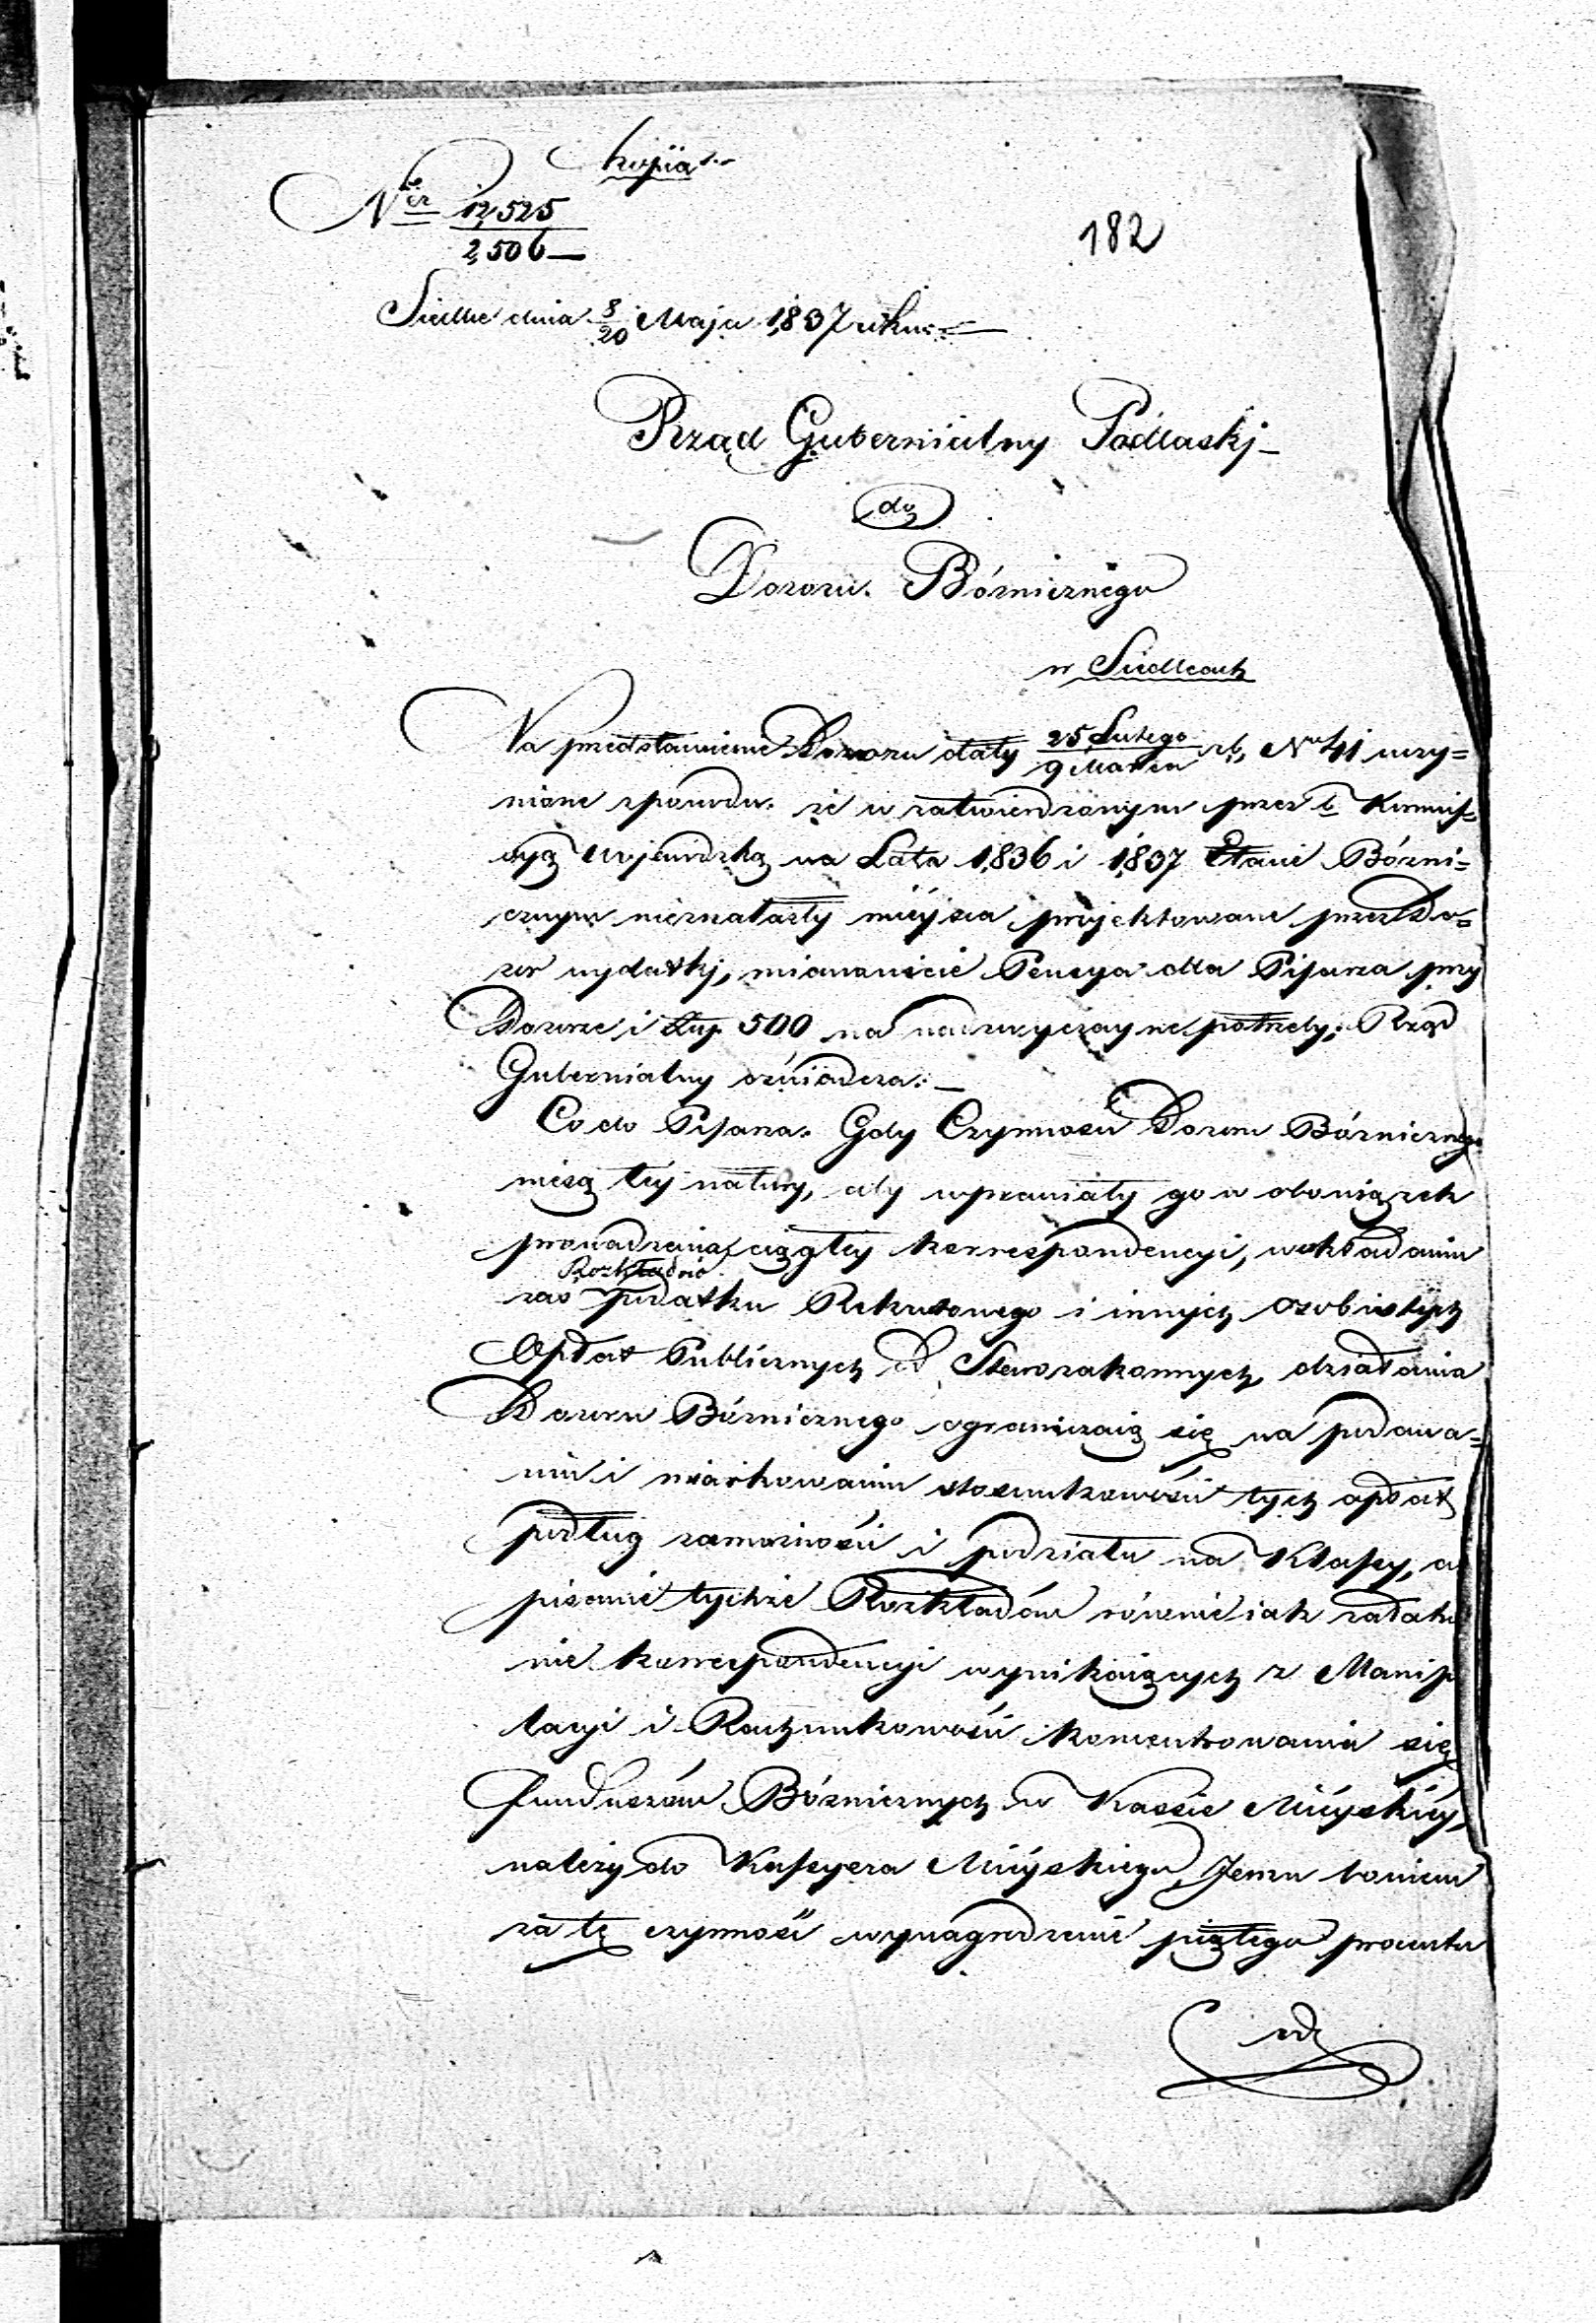 kopiia
Nier 12,525
2,506
182
Siedlce dnia 8/20 Maja 1837 roku
Rząd Gubernialny Podlaskj
do
Dozoru Bóznicznego
w Siedlcach
Na przedstawienie Dozoru daty 25 Lutego / 9 Marca r.b. No 41 uczy=
nione zpowodu że w zatwierdzonym przez b. Kommis=
syą Wojewdzką na Lata 1836 i 1837 Etacie Bózni=
cznym nieznalazły mieysca projektowane przez Do=
zor wydatkj, mianowicie Pensya dla Pisarza przy
Dozorze i Złp. 500 na nadzwyczayne potrzeby, Rząd
Gubernialny oświadcza:
Co do Pisarza. Gdy Czynności Dozoru Bózniczneg
niesą téy natury, aby wprawiały go w obowiązek
prowadzenia ciągłey korrespondencyi, w układaniu
Rozkładów
zaś podatku Rekrutowego i innych osobistych
Opłat Publicznych od Starozakonnych, działania
Dozoru Bózniczego ograniczaią się na podawa=
niu i miarkowaniu stosunkowości tych opłat
podług zamożności i podziału na Klassy, a
pisanie tychże Rozkładów równie iak załatw
nie korrespondencyi wynikaiących z Manipu
lacyi i Rachunkowości koncentrowania się
funduszów Bózniczych w Kassie Mieyskiey,
należy do Kassyera Mieyskiego, Jemu bowiem
za tę czynność wynagrodzenie piątego procentu